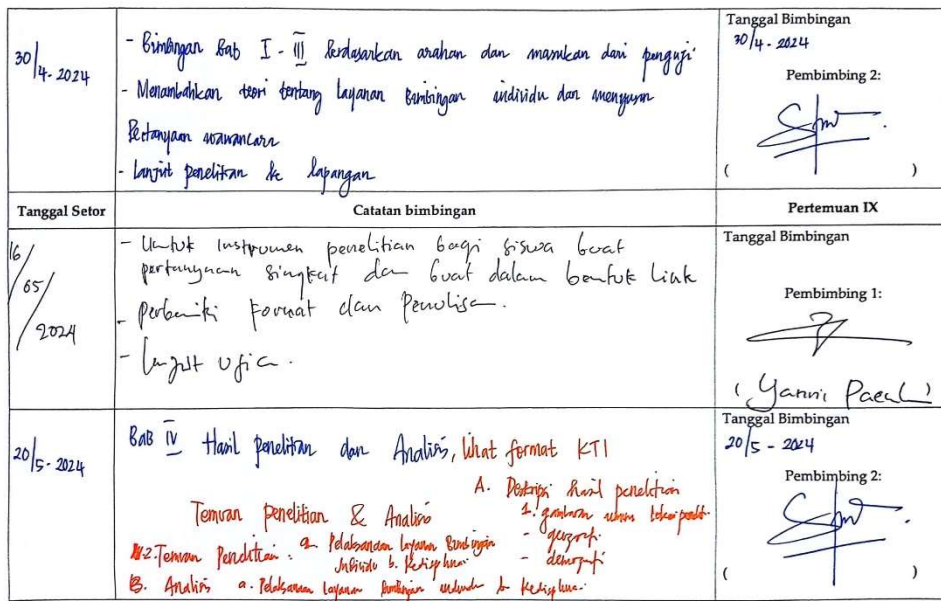 30/4-2024
- Bimbingan Bab I - III berdasarkan arahan dan masukan dari penguji
- Menambahkan teori tentang layanan bimbingan individu dan menyusun
Pertanyaan wawancara
- Lanjut penelitian ke lapangan
Tanggal Bimbingan
30/4-2024
Pembimbing 2:
( )
Tanggal Setor Catatan bimbingan Pertemuan IX
16/05/2024
- Untuk instrumen penelitian bagi siswa buat
pertanyaan singkat dan buat dalam bentuk Link
- perbaiki format dan Penulisan.
- Lanjut ujian.
Tanggal Bimbingan
Pembimbing 1:
(Yanni Paca)
20/5-2024
Bab IV Hasil penelitian dan Analisis, lihat format KTI
A. Deskripsi hasil penelitian
Temuan penelitian & Analisis
1. gambaran umum lokasi penelit.
- geografi
- demografi
2. Temuan Penelitian. a. Pelaksanaan layanan Bimbingan
Individu b. Kedisplinan
B. Analisis a. Pelaksanaan layanan bimbingan individu b. Kedisplinan.
Tanggal Bimbingan
20/5 - 2024
Pembimbing 2:
( )